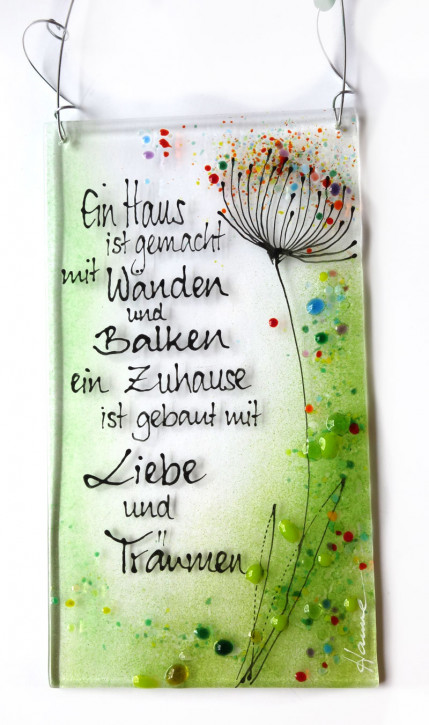 Ein Haus
ist gemacht
mit Wänden
und
Balken
ein Zuhause
ist gebaut mit
Liebe
und
Träumen
Hanne